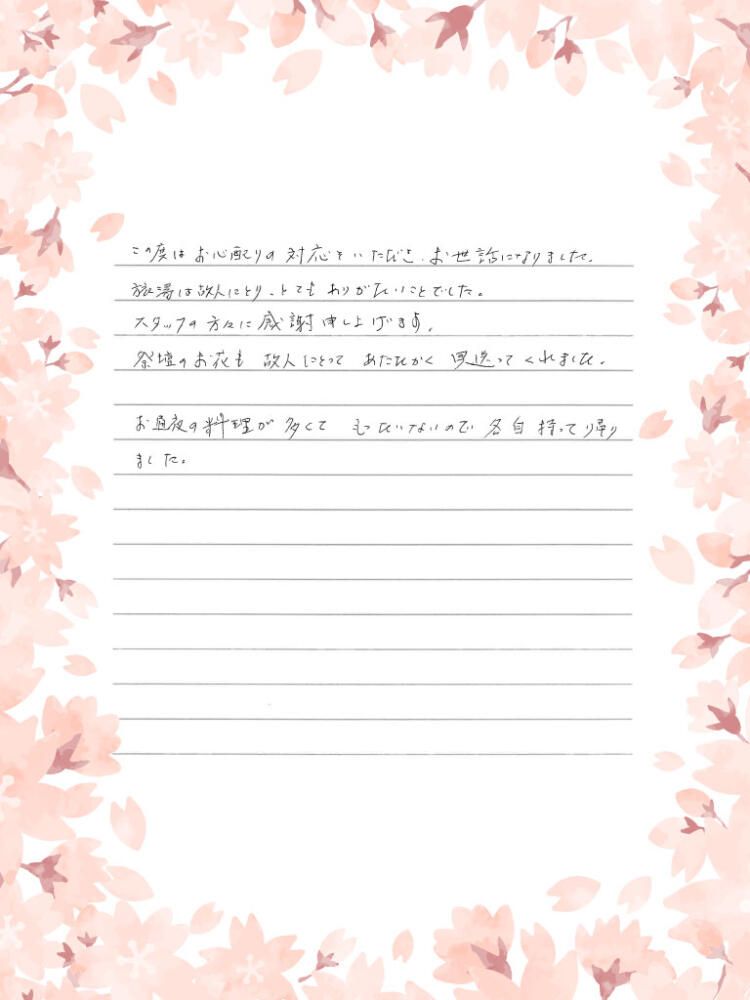 この度は お心配りの 対応をいただき、お世話になりました。
旅湯は故人にとり、とても ありがたいことでした。
スタッフの 方々に 感謝 申し上げます。
祭壇のお花も 故人にとって あたたかく 見送って くれました。
お通夜の料理が 多くて もったいないので 各自 持って帰り
ました。